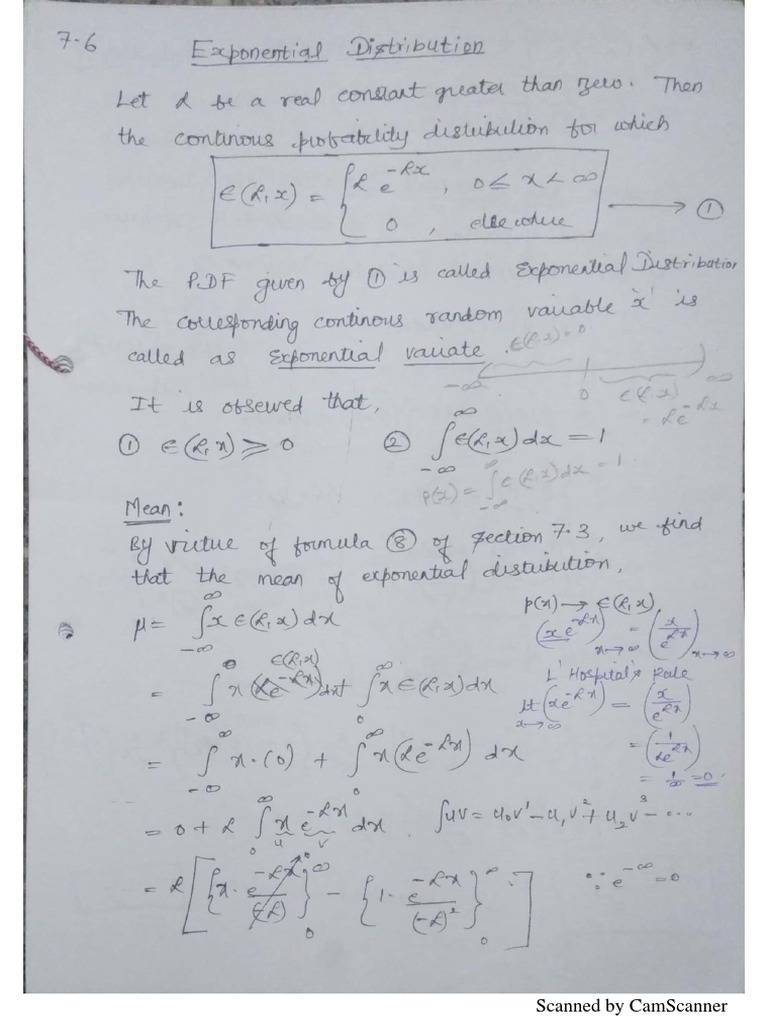 7.6 Exponential Distribution
Let α be a real constant greater than zero. Then
the continous probability distribution for which
∈(α,x) = { α e^{-αx} , 0 ≤ x < ∞
0 , elsewhere → ①
The PDF given by ① is called Exponential Distribution
The corresponding continous random variable 'x' is
called as Exponential variate.
∈(α,x)=0
-∞ 0 ∈(α,x) ∞
= αe^{-αx}
It is observed that,
① ∈(α,x) ⩾ 0 ② ∫_{-∞}^{∞} ∈(α,x) dx = 1
p(x) = ∫_{-∞}^{∞} ∈(α,x) dx = 1
Mean:
By virtue of formula ⑧ of section 7.3, we find
that the mean of exponential distribution,
μ = ∫_{-∞}^{∞} x ∈(α,x) dx
= ∫_{-∞}^{0} x ∈(α,x) dx + ∫_{0}^{∞} x ∈(α,x) dx
= ∫_{-∞}^{0} x·(0) + ∫_{0}^{∞} x (αe^{-αx}) dx
= 0 + α ∫_{0}^{∞} x e^{-αx} dx. ∫uv = u₀v¹ - u₁v² + u₂v³ - ...
u v
= α [ { x · e^{-αx}/(-α) }_{0}^{∞} - { 1 · e^{-αx}/(-α)² }_{0}^{∞} ] ∵ e^{-∞} = 0
p(x) → ∈(α,x)
(xe^{-αx})_{x→∞} = (x/e^{αx})_{x→∞}
L' Hospital's Rule
lt_{x→∞} (xe^{-αx}) = (x/e^{αx})
= (1/αe^{αx})
= 1/∞ = 0
Scanned by CamScanner